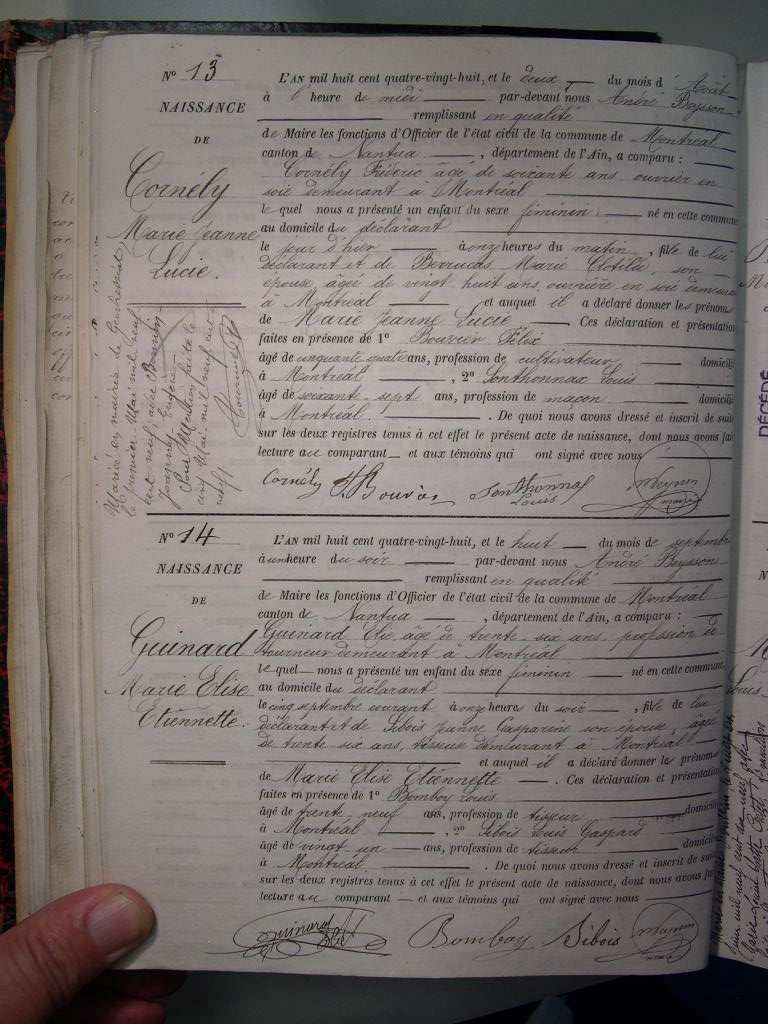 N° 13
NAISSANCE
DE
Cornély
Marie Jeanne
Lucie.
L'AN mil huit cent quatre-vingt-huit, et le deux du mois d'Août
à l'heure de midi par-devant nous André Beysson
remplissant en qualité
de Maire les fonctions d'Officier de l'état civil de la commune de Montréal
canton de Nantua, département de l'Ain, a comparu :
Cornély Fréderic âgé de soixante ans, ouvrier en
soie demeurant à Montréal
lequel nous a présenté un enfant du sexe féminin né en cette commune
au domicile du déclarant
le jour d'hier à onze heures du matin, fille de lui
déclarant et de Marie Clotilde, son
épouse, âgée de vingt huit ans, ouvrière en soie demeurant
à Montréal et auquel il a déclaré donner les prénoms
de Marie Jeanne Lucie. Ces déclaration et présentation
faites en présence de 1° Bouvier Félix
âgé de cinquante quatre ans, profession de cultivateur domicilié
à Montréal, 2° Sonthonnax Louis
âgé de soixante-sept ans, profession de maçon domicilié
à Montréal. De quoi nous avons dressé et inscrit de suite
sur les deux registres tenus à cet effet le présent acte de naissance, dont nous avons fait
lecture au comparant et aux témoins qui ont signé avec nous
Cornély F. Bouvier Sonthonnax
Louis
Mariée en mairie de
le premier Mai mil neuf
cent neuf, avec
Joseph Eugène
Pour Mention faite le
six Mai mil neuf cent
neuf.
N° 14
NAISSANCE
DE
Guinard
Marie Elise
Etiennette.
L'AN mil huit cent quatre-vingt-huit, et le huit du mois de septembre
à un heure du soir par-devant nous André Beysson
remplissant en qualité
de Maire les fonctions d'Officier de l'état civil de la commune de Montréal
canton de Nantua, département de l'Ain, a comparu :
Guinard Elie, âgé de trente-six ans, profession de
tourneur demeurant à Montréal
lequel nous a présenté un enfant du sexe féminin né en cette commune
au domicile du déclarant
le cinq septembre courant à onze heures du soir, fille de lui
déclarant et de Sibois Jeanne Gasparine son épouse, âgée
de trente-six ans, tisseuse demeurant à Montréal
et auquel il a déclaré donner les prénoms
de Marie Elise Etiennette. Ces déclaration et présentation
faites en présence de 1° Bomboy Louis
âgé de trente neuf ans, profession de tisseur domicilié
à Montréal, 2° Sibois Louis Gaspard
âgé de vingt un ans, profession de tisseur domicilié
à Montréal. De quoi nous avons dressé et inscrit de suite
sur les deux registres tenus à cet effet le présent acte de naissance, dont nous avons fait
lecture au comparant et aux témoins qui ont signé avec nous
Guinard Elie Bomboy Sibois
DÉCÉDÉ